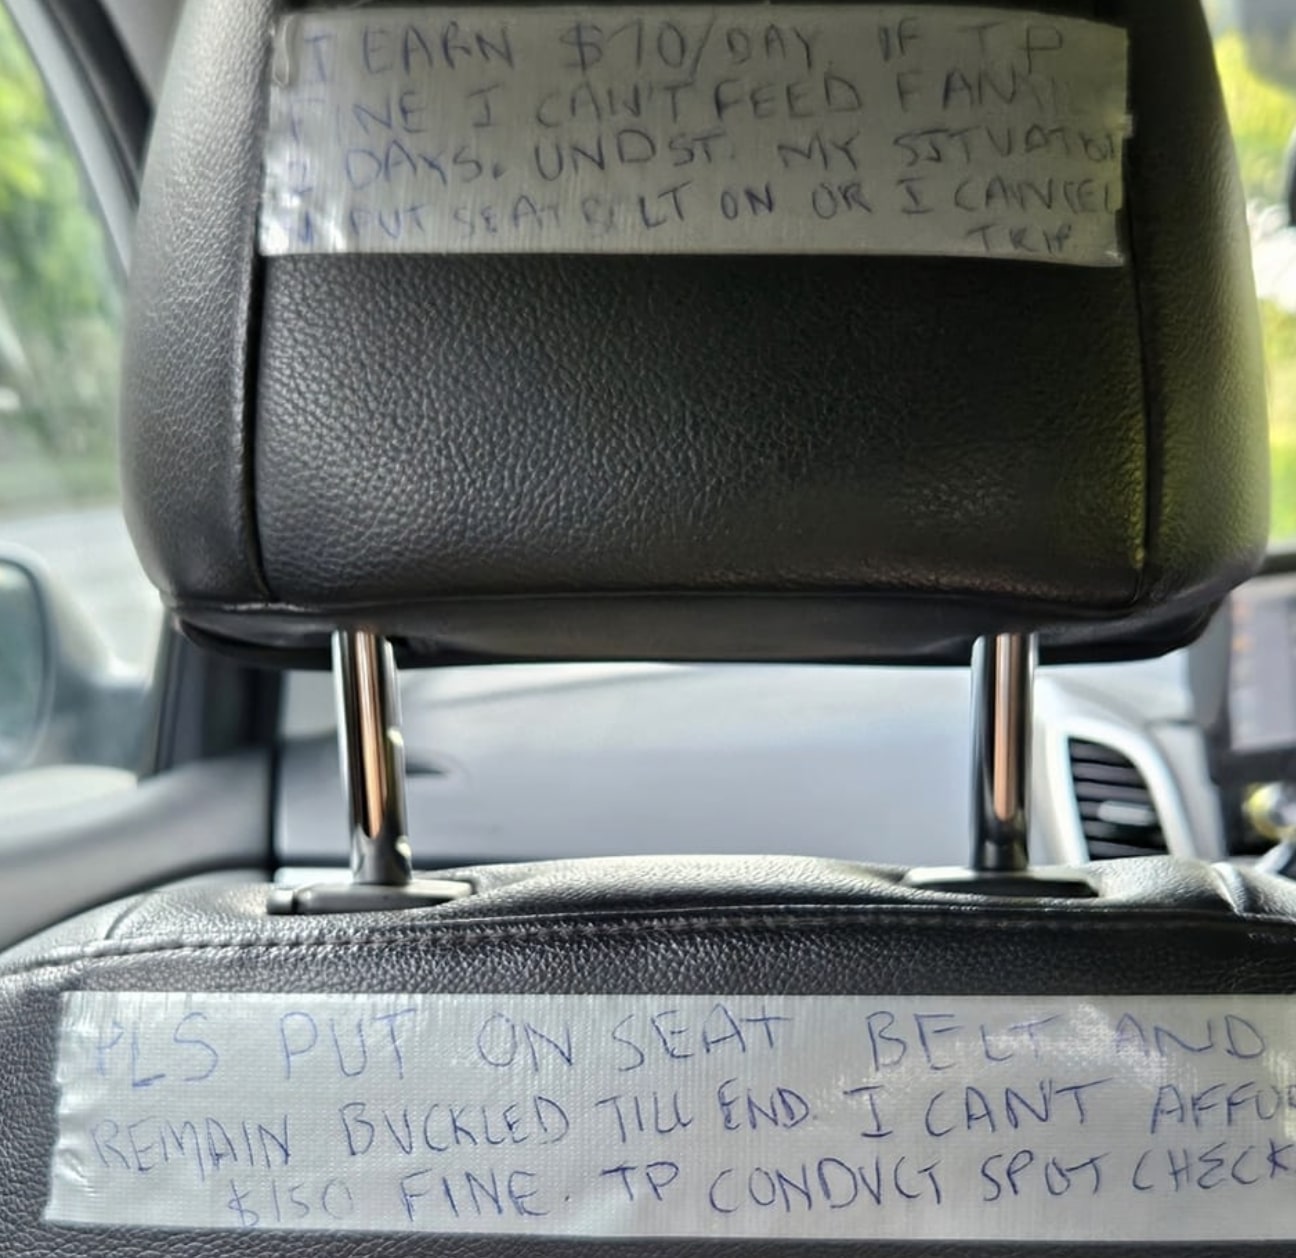 I EARN $70/DAY. IF TP
FINE I CAN'T FEED
DAYS. UNDST. MY SITUATION
PUT SEATBELT ON OR I CANCEL
TRIP
PLS PUT ON SEAT BELT AND
REMAIN BUCKLED TILL END. I CAN'T
$150 FINE. TP CONDUCT SPOT CHECK